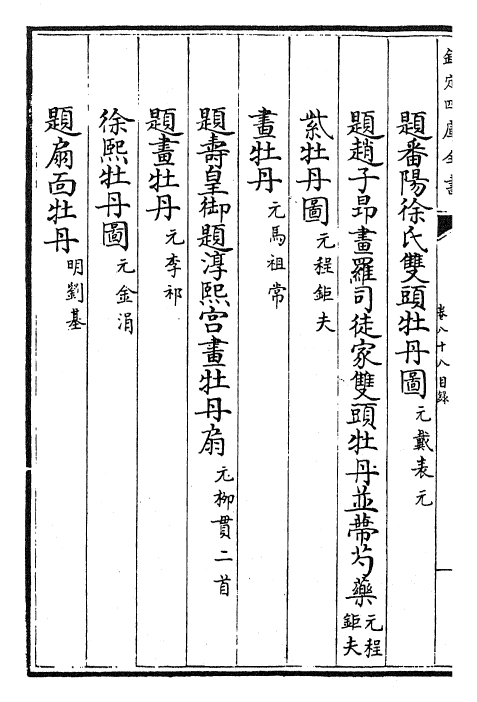 欽定四庫全書
卷八十八目錄
題番陽徐氏雙頭牡丹圖 元戴表元
題趙子昻畫羅司徒家雙頭牡丹並蔕芍藥 元程鉅夫
紫牡丹圖 元程鉅夫
畫牡丹 元馬祖常
題壽皇御題淳熙宫畫牡丹扇 元柳貫二首
題畫牡丹 元李祁
徐熙牡丹圖 元金涓
題扇面牡丹 明劉基